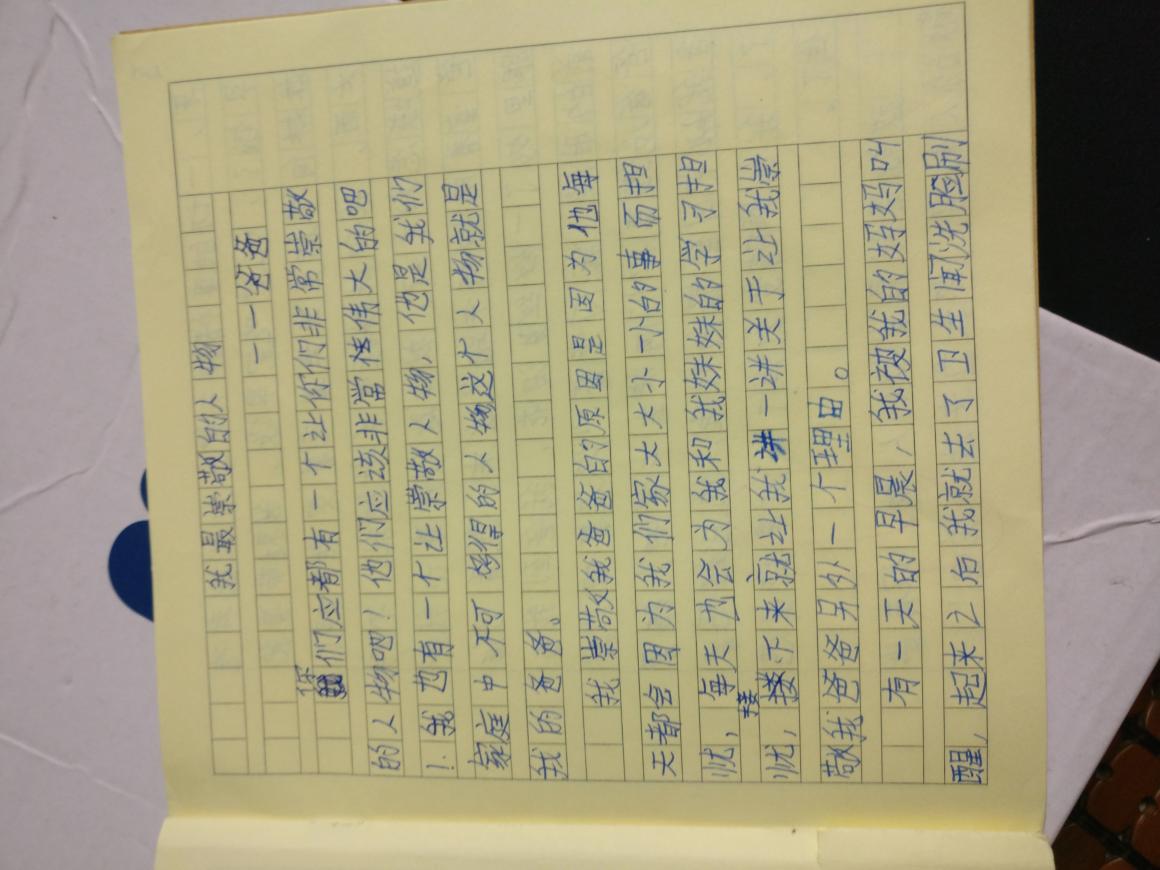 我最崇敬的人物
——爸爸
你们应都有一个让你们非常崇敬
的人物吧！他们应该非常伟大的吧
！我也有一个让崇敬人物，他是我们
家庭中不可多得的人物这个人物就是
我的爸爸。
我崇敬我爸爸的原因是因为他每
天都会因为我们家大大小小的事而担
忧，每天也会为我和我妹妹的学习担
忧，接下来就让我讲一讲关于让我崇
敬我爸爸另外一个理由。
有一天的早晨，我被我的妈妈叫
醒，起来之后我就去了卫生间洗脸刷